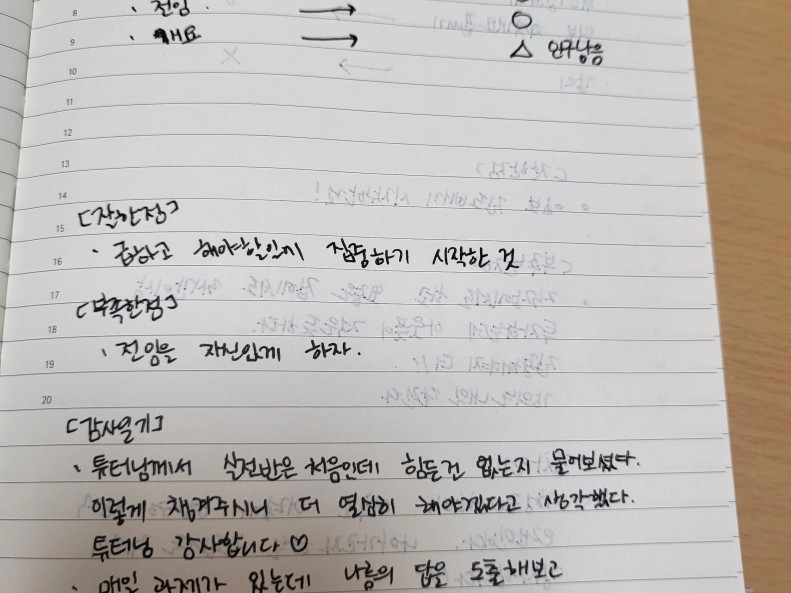 8 · 전임 → ○
9 · 개요 → △ 연구낳음
10
11
12
13
14
15 [잘한점]
16 · 급하고 해야할일께 집중하기 시작한 것
17 [부족한점]
18 · 전임을 자신있게 하자.
19
20
[감사일기]
· 튜터님께서 실전반은 처음인데 힘든건 없는지 물어보셨다.
이렇게 챙겨주시니 더 열심히 해야겠다고 생각했다.
튜터님 감사합니다 ♡
· 매일 과제가 있는데 나름의 답을 도출해보고